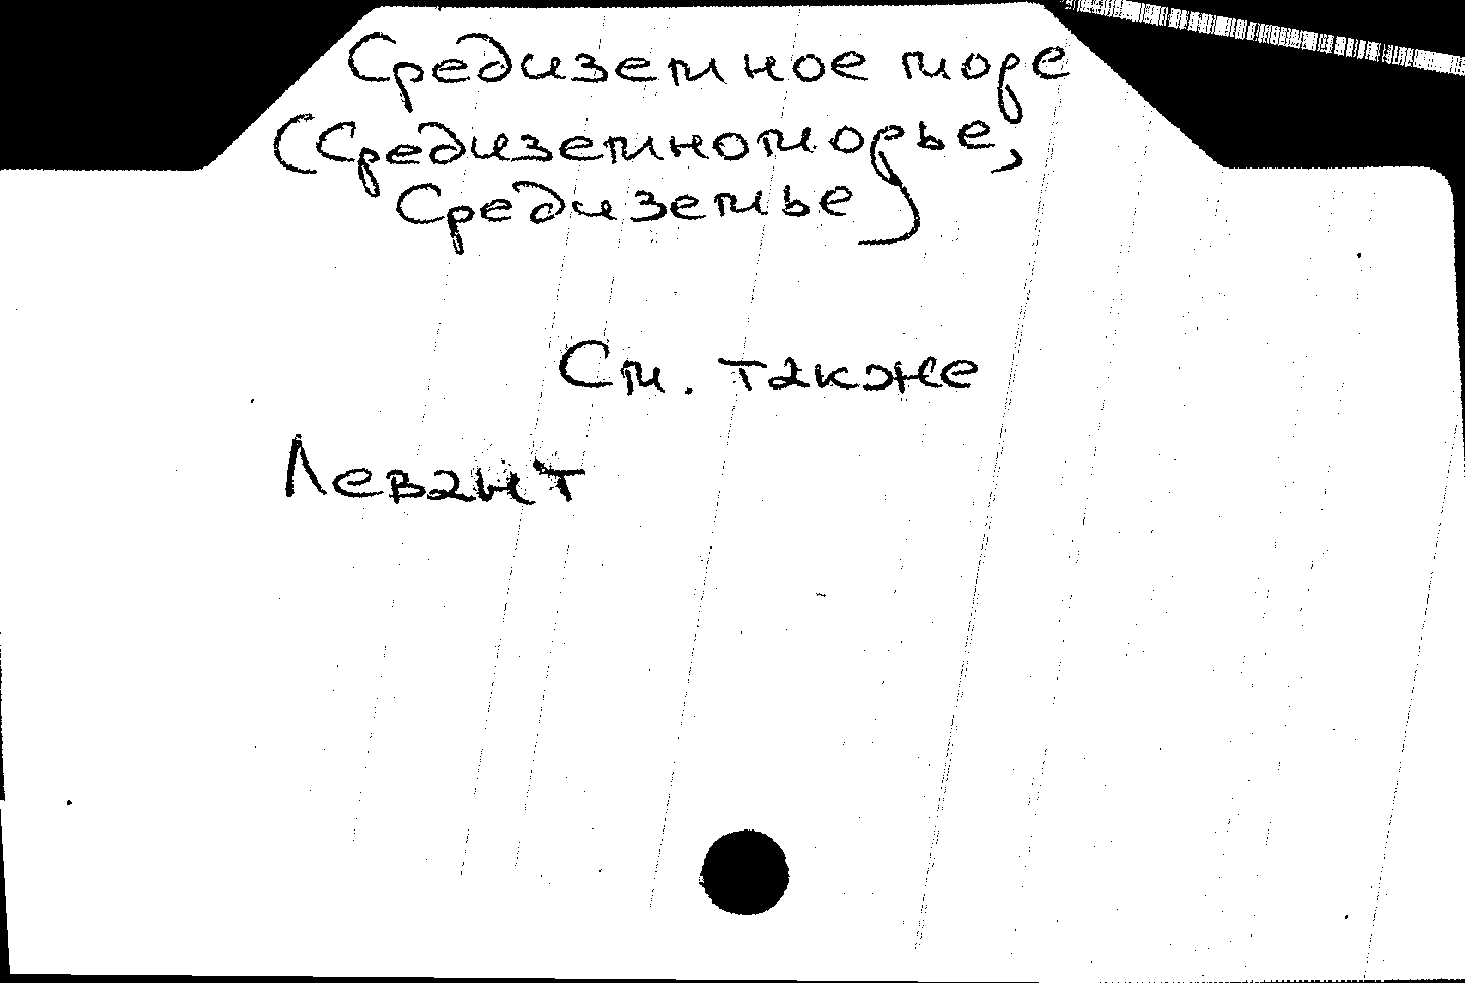 Средиземное море
(Средиземноморье,
Средиземье)
См. также
Левант